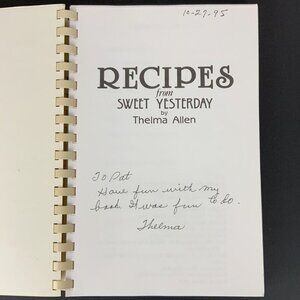 10-27-95
RECIPES
from
SWEET YESTERDAY
by
Thelma Allen
To Pat
Have fun with my
book It was fun to do.
Thelma